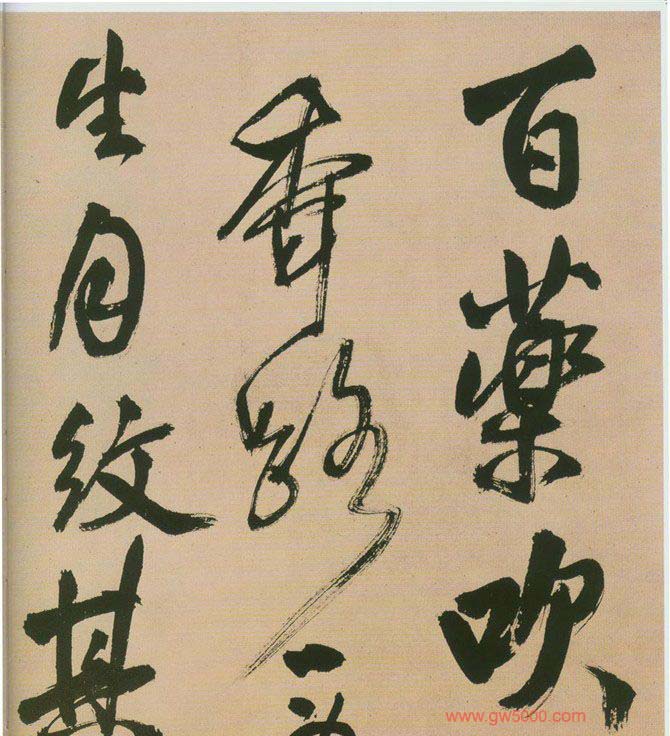 百藥吹
香路一
生月紋其
www.gw5000.com